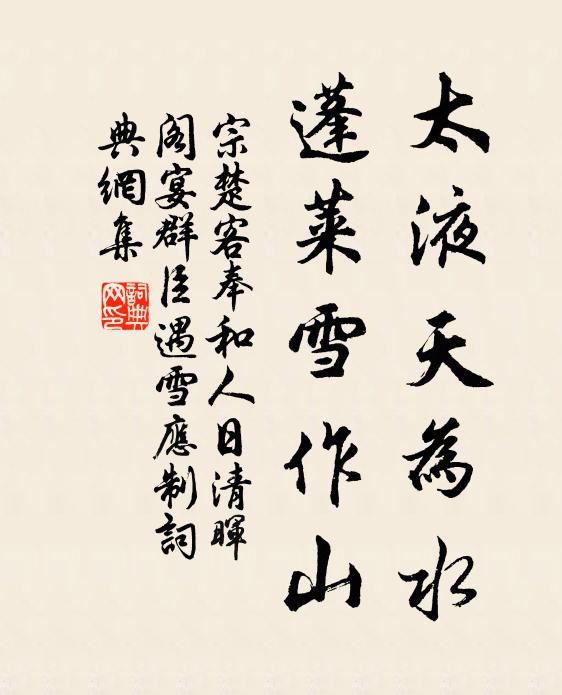 太液天為水
蓬萊雪作山
宗楚客奉和人日清暉
閣宴群臣遇雪應制詞
典網集
詞典
网印